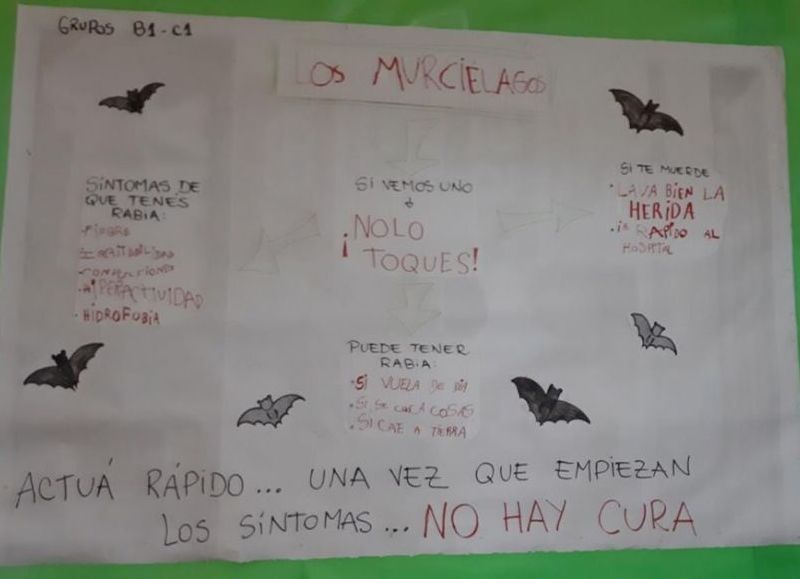 GRUPOS B1-C1
LOS MURCIÉLAGOS
SÍNTOMAS DE
QUE TENES
RABIA:
·FIEBRE
·IRRITABILIDAD
·CONVULSIONES
·HIPERACTIVIDAD
·HIDROFOBIA
SI VEMOS UNO
¡NO LO
TOQUES!
SI TE MUERDE
·LAVA BIEN LA
HERIDA
·IR RAPIDO AL
HOSPITAL
PUEDE TENER
RABIA:
·SI VUELA DE DÍA
·SI SE CHOCA COSAS
·SI CAE A TIERRA
ACTUÁ RÁPIDO... UNA VEZ QUE EMPIEZAN
LOS SÍNTOMAS... NO HAY CURA